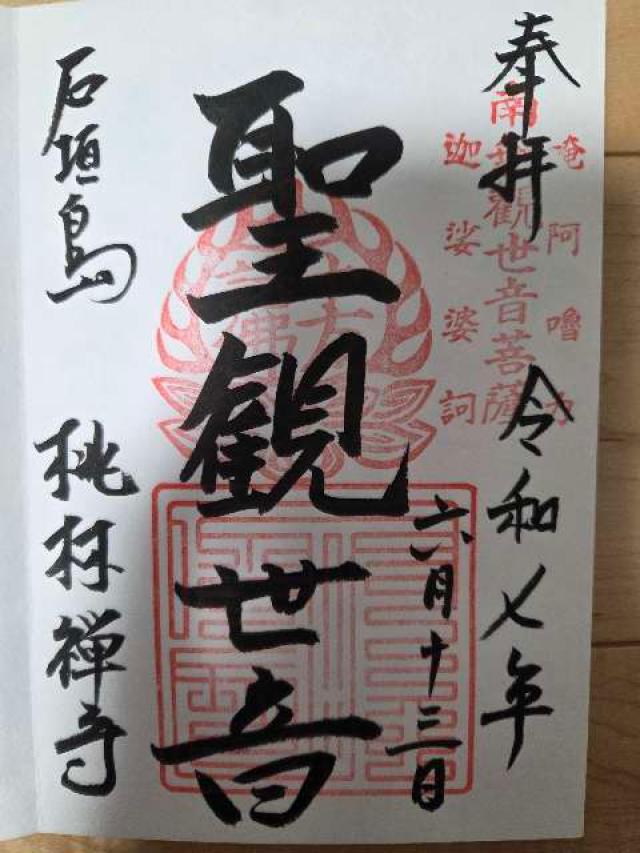 奉拝
令和七年
六月十三日
唵阿嚕力
南無觀世音菩薩
迦娑婆訶
聖観世音
石垣島
桃林禅寺